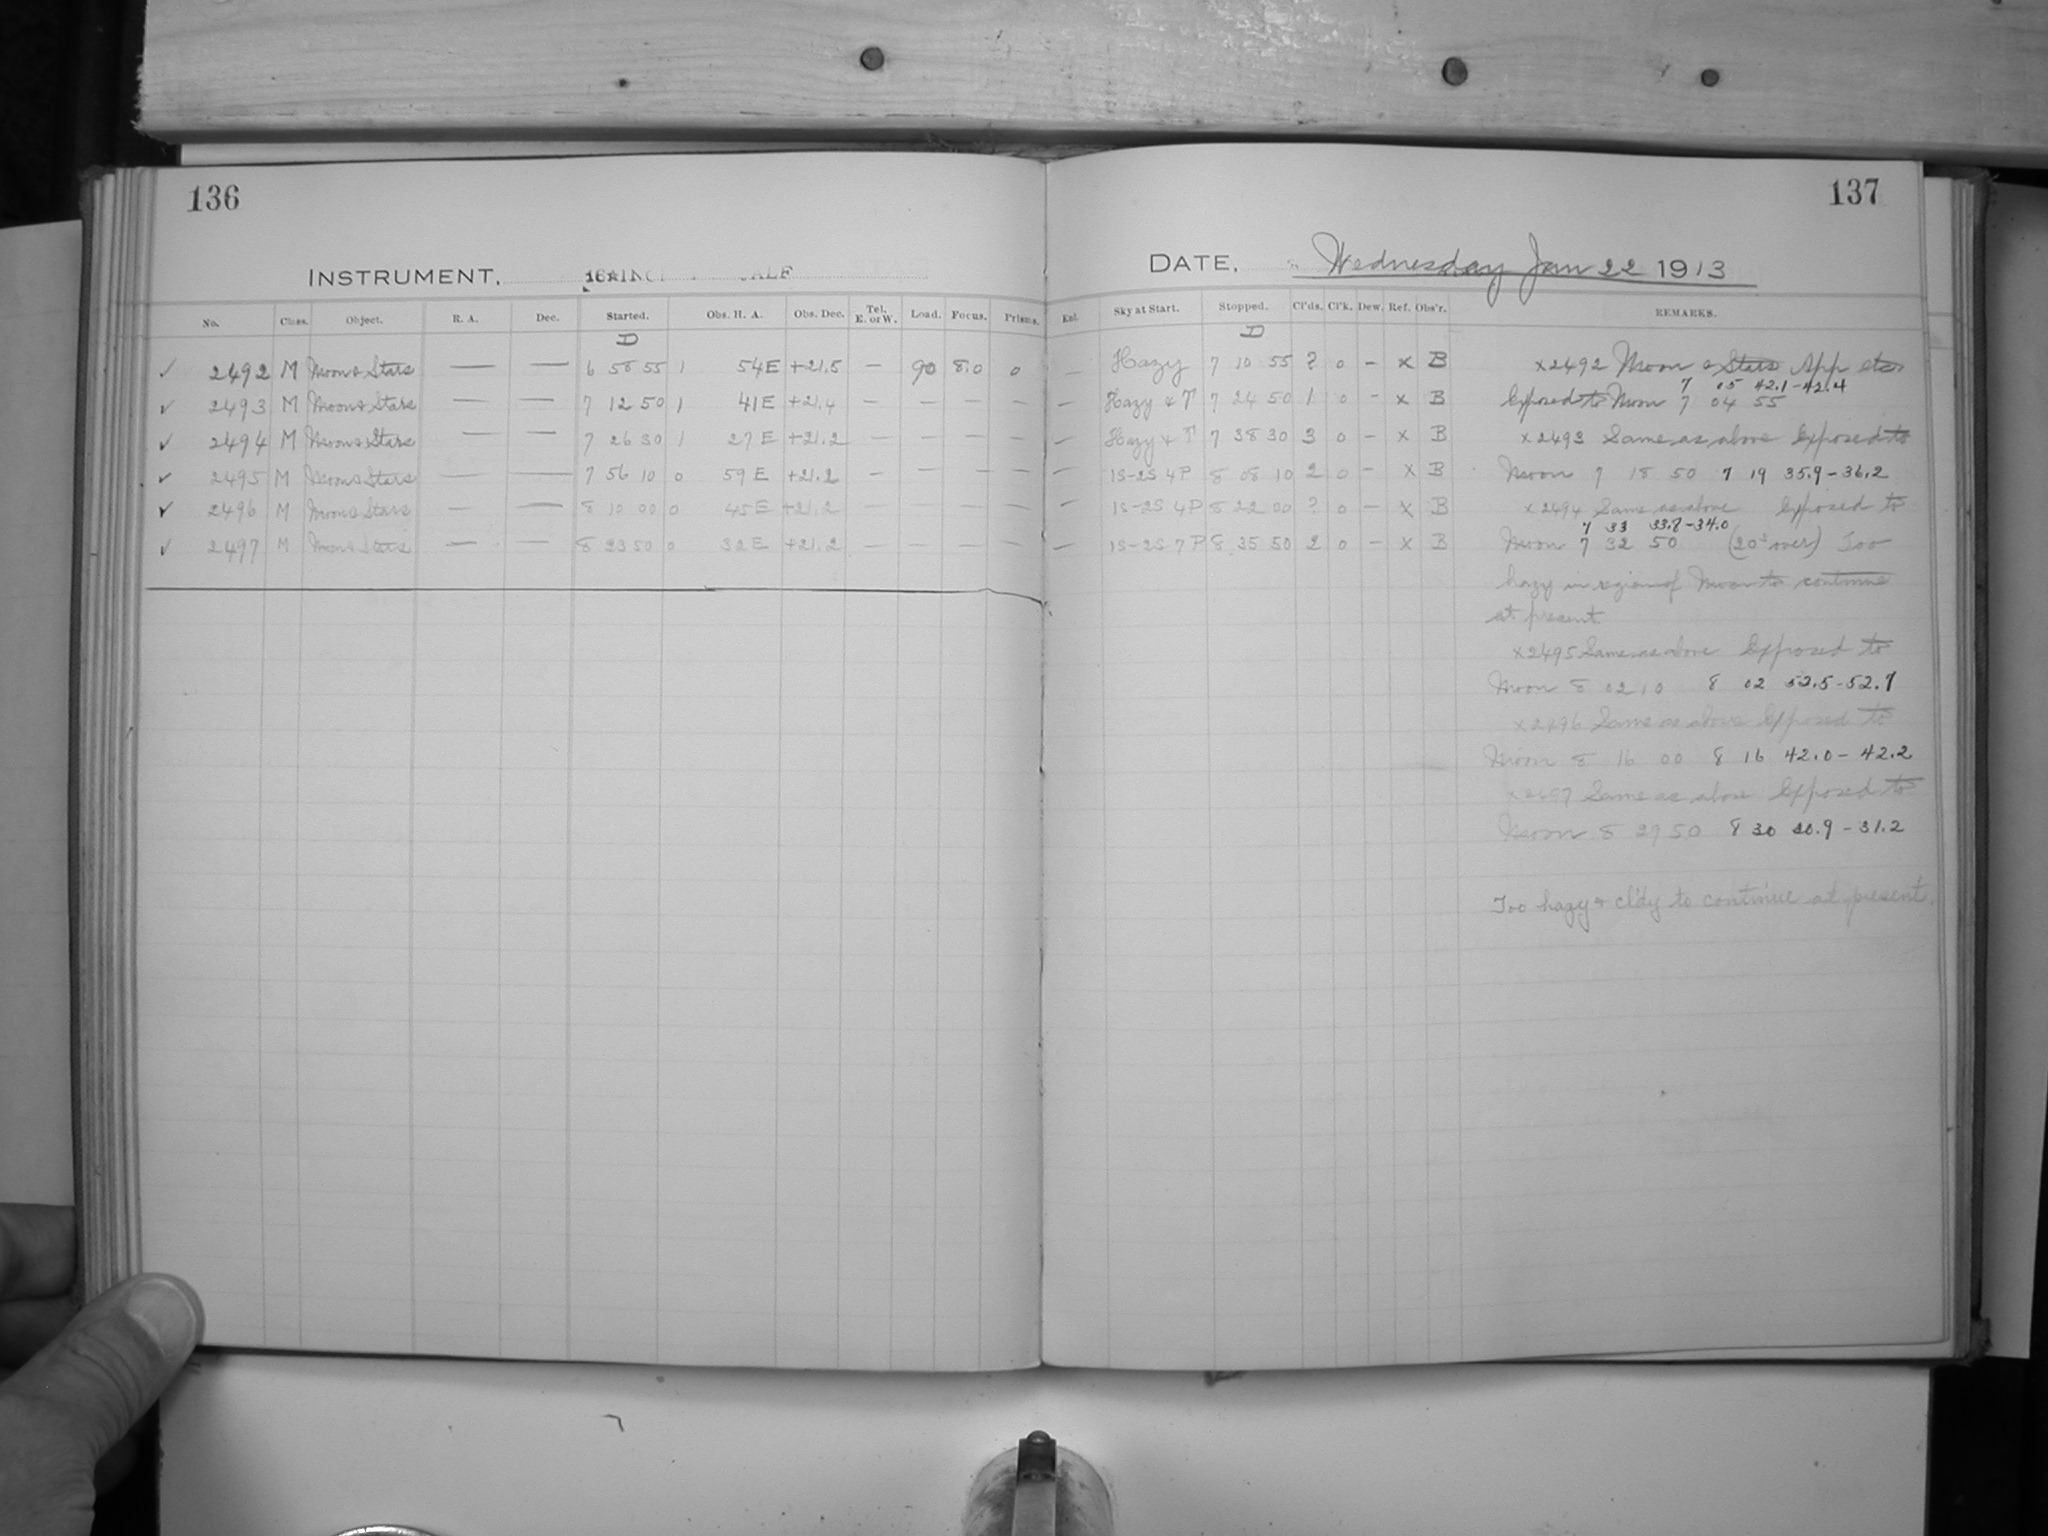 136
INSTRUMENT,
No. Class. Object. R. A. Dec. Started. Obs. H. A. Obs. Dec. Tel. E. or W. Load. Focus. Prisms.
D
✓ 2492 M Moon & Stars — — 6 58 55 1 54 E +21.5 — 90 8.0 0
✓ 2493 M Moon & Stars — — 7 12 50 1 41 E +21.4 — — — —
✓ 2494 M Moon & Stars — — 7 26 30 1 27 E +21.2 — — — —
✓ 2495 M Moon & Stars — — 7 56 10 0 59 E +21.2 — — — —
✓ 2496 M Moon & Stars — — 8 10 00 0 45 E +21.2 — — — —
✓ 2497 M Moon & Stars — — 8 23 50 0 32 E +21.2 — — — —
137
DATE, Wednesday Jan 22 1913
Enl. Sky at Start. Stopped. Cl'ds. Cl'k. Dew. Ref. Obs'r. REMARKS.
D
— Hazy 7 10 55 ? 0 — x B
— Hazy & T 7 24 50 1 0 — x B
— Hazy & T 7 38 30 3 0 — x B
— 1S-2S 4P 8 08 10 2 0 — x B
— 1S-2S 4P 8 22 00 ? 0 — x B
— 1S-2S 7P 8 35 50 2 0 — x B
x2492 Moon & Stars App etc
7 05 42.1-42.4
Exposed to Moon 7 04 55
x2493 Same as above Exposed to
Moon 7 18 50 7 19 35.9-36.2
x2494 Same as above Exposed to
7 33 33.8-34.0
Moon 7 32 50 (20s over) Too
hazy in region of Moon to continue
at present
x2495 Same as above Exposed to
Moon 8 02 10 8 02 52.5-52.7
x2496 Same as above Exposed to
Moon 8 16 00 8 16 42.0-42.2
x2497 Same as above Exposed to
Moon 8 29 50 8 30 30.9-31.2
Too hazy & cl'dy to continue at present.